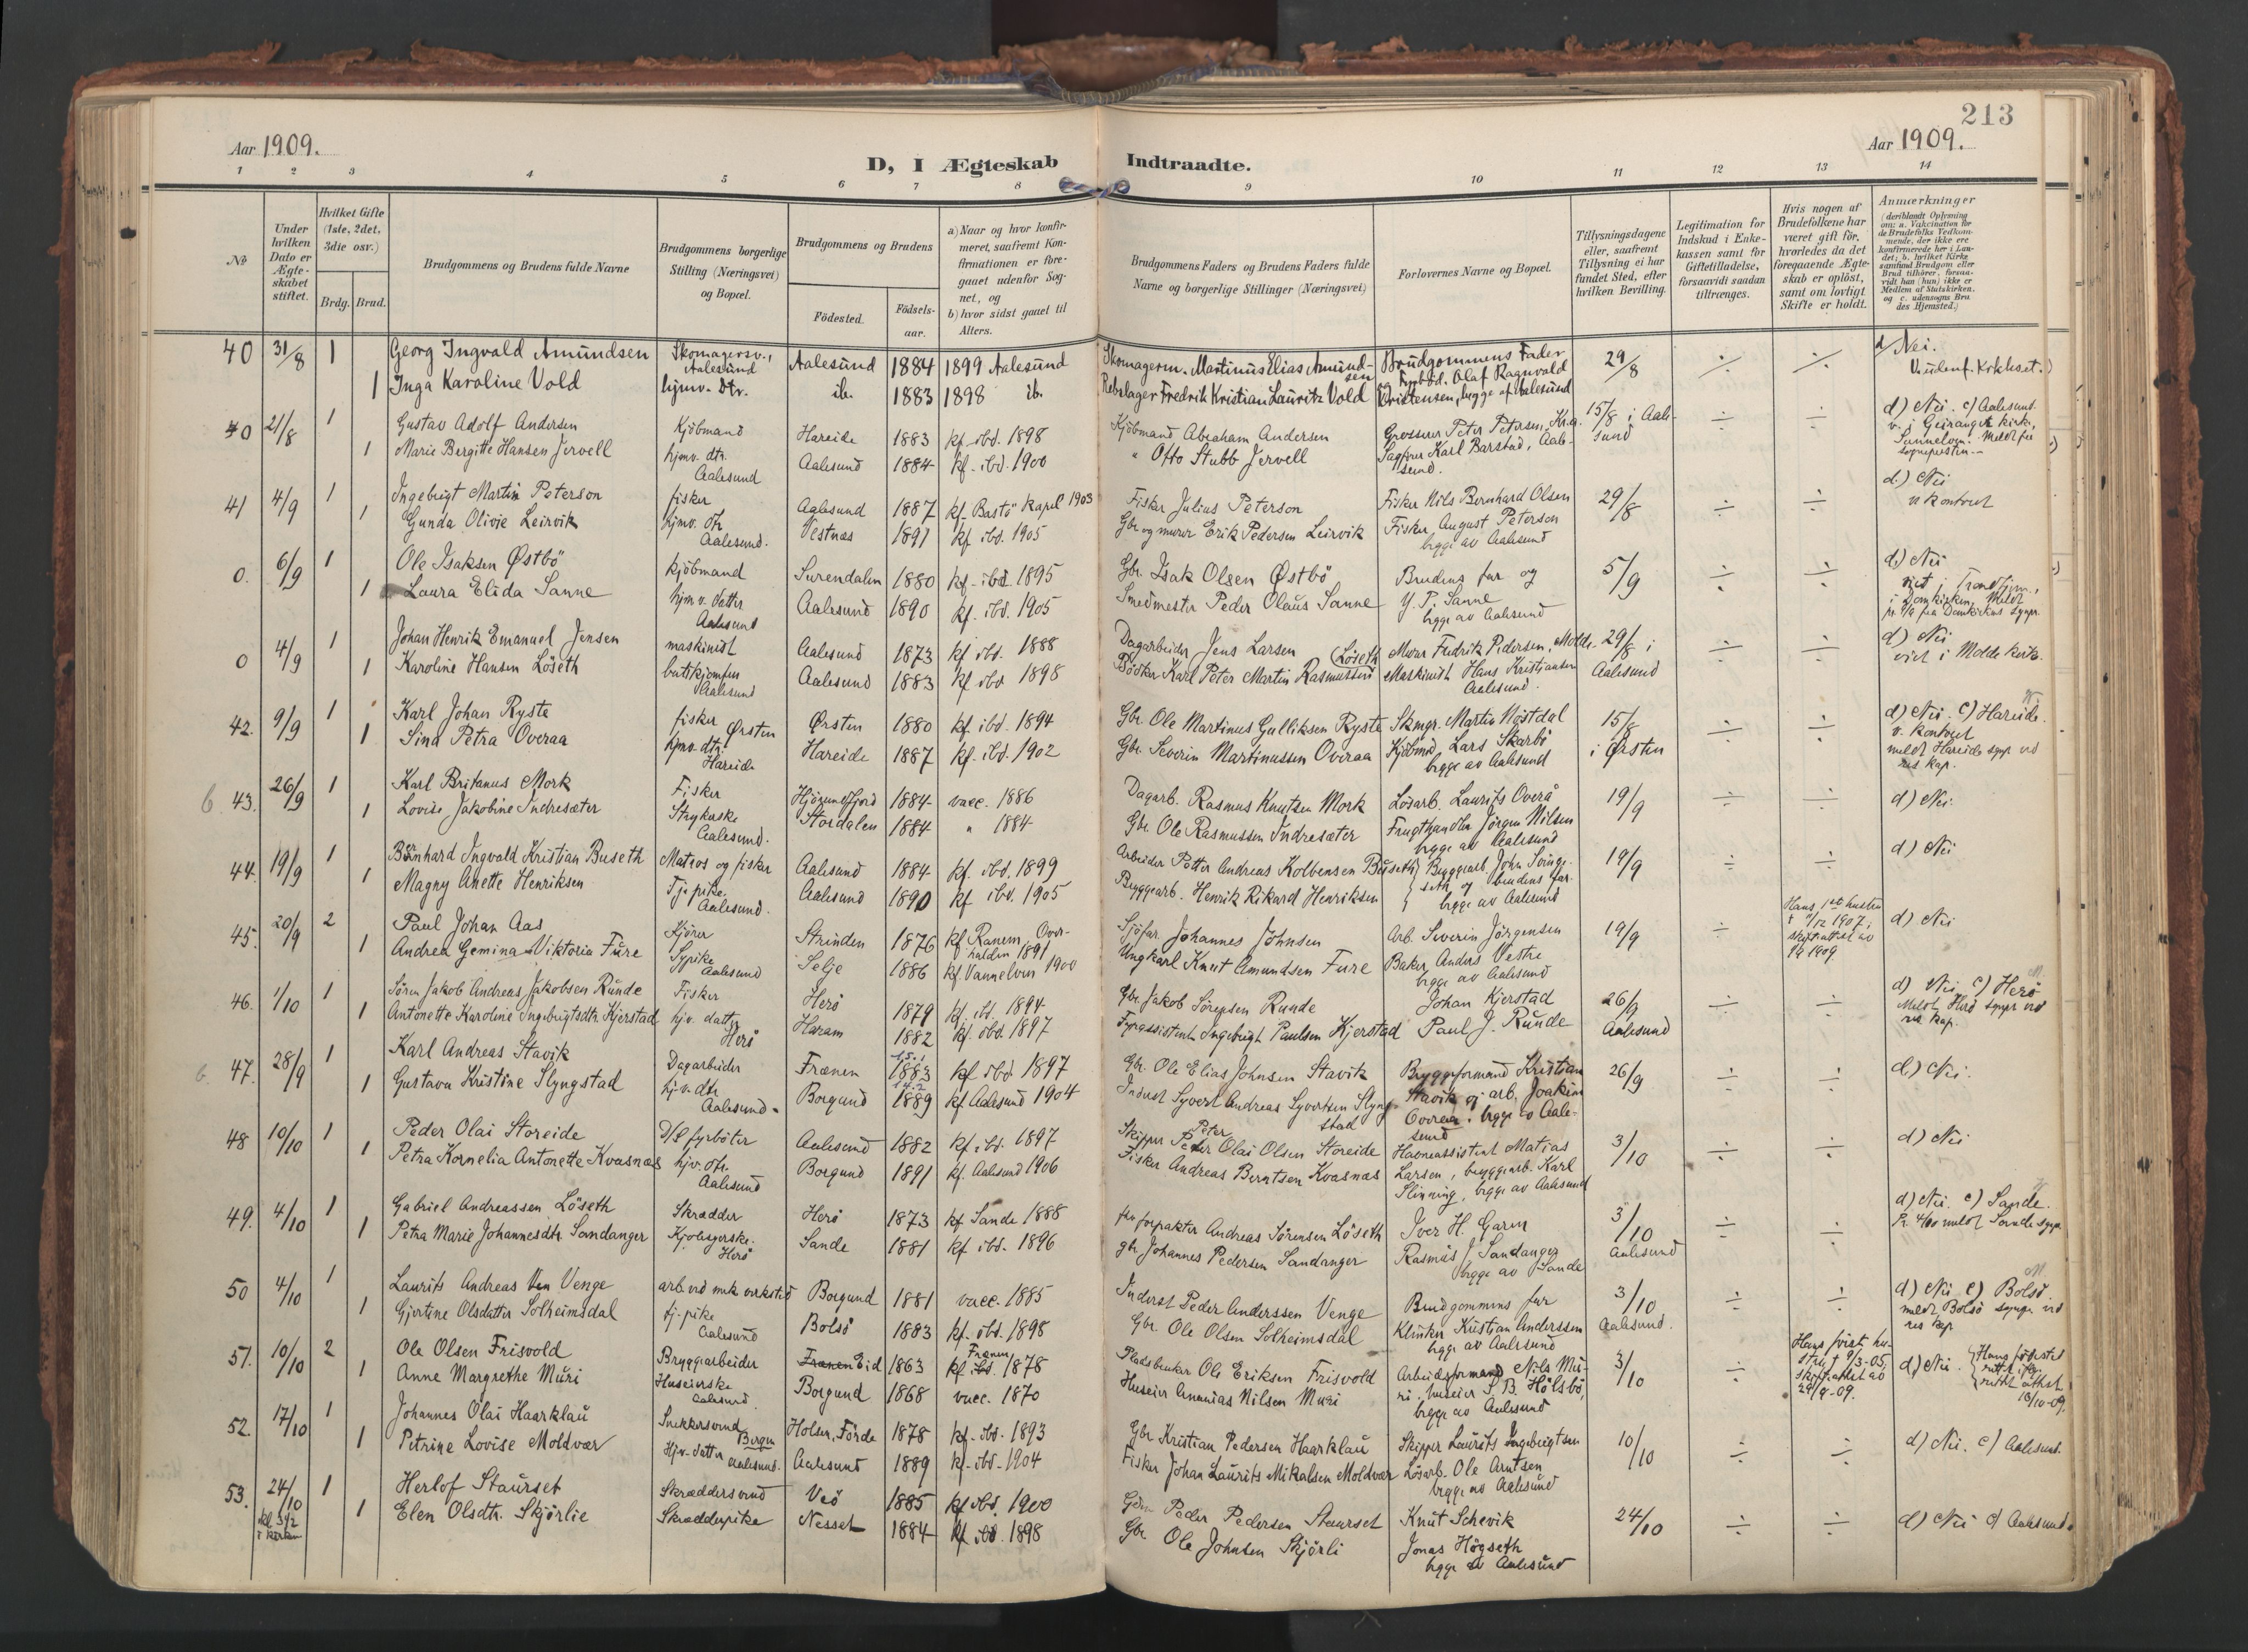 213
Aar 1909.
Aar 1909.
D, I Ægteskab Indtraadte.
1 2 3 4 5 6 7 8 9 10 11 12 13 14
No
Under hvilken Dato er Ægteskabet stiftet.
Hvilket Gifte (1ste, 2det, 3die osv.)
Brdg. Brud.
Brudgommens og Brudens fulde Navne
Brudgommens borgerlige Stilling (Næringsvei) og Bopæl.
Brudgommens og Brudens
Födested.
Födsels-aar.
a) Naar og hvor konfirmeret, saafremt Konfirmationen er foregaaet udenfor Sognet, og
b) hvor sidst gaaet til Alters.
Brudgommens Faders og Brudens Faders fulde Navne og borgerlige Stillinger (Næringsvei)
Forlovernes Navne og Bopæl.
Tillysningsdagene eller, saafremt Tillysning ei har fundet Sted, efter hvilken Bevilling.
Legitimation for Indskud i Enkekassen samt for Giftetilladelse, forsaavidt saadan tiltrænges.
Hvis nogen af Brudefolkene har været gift för, hvorledes da det foregaaende Ægteskab er oplöst, samt om lovligt Skifte er holdt.
Anmærkninger
(deriblandt Oplysning om: a. Vakcination for de Brudefolks Vedkommende, der ikke ere konfirmerede her i Landet; b. hvilket Kirkesamfund Brudgom eller Brud tilhörer, forsaavidt han (hun) ikke er Medlem af Statskirken, og c. udensogns Brudes Hjemsted.)
40 31/8 1 Georg Ingvald Amundsen Skomagersv., Aalesund Aalesund 1884 1899 Aalesund Skomagerm. Martinus Elias Amundsen Brudgommens Fader 29/8 ÷ ÷ d) Nei.
1 Inga Karoline Vold hjmv. Dtr. ib. 1883 1898 ib. Rebslager Fredrik Kristian Lauritz Vold og Fyrböd. Olaf Ragnvald Kristensen, begge af Aalesund
40 21/8 1 Gustav Adolf Andersen Kjöbmand Hareide 1883 kf. ibd. 1898 Kjöbmand Abraham Andersen Grosserer Peter Petersen, Kr.a. 15/8 i Aalesund ÷ ÷ d) Nei. c) Aalesund. v. i Geiranger kirke, Sunnelven. Meldt fra sogneprestin
1 Marie Bergitte Hansen Jervell hjmv. dtr. Aalesund Aalesund 1884 kf. ibd. 1900 " Otto Stubb Jervell Sagförer Karl Barstad, Aalesund.
41 4/9 1 Ingebrigt Martin Peterson fisker Aalesund 1887 kf. Bastö kapel 1903 Fisker Julius Peterson Fisker Nils Bernhard Olsen 29/8 ÷ ÷ d.) Nei v kontoret
1 Gunda Olivie Leirvik hjmv. dtr Aalesund. Vestnæs 1891 kf. ibd. 1905 Gbr. og murer Erik Pedersen Leirvik Fisker August Peterson begge av Aalesund
0. 6/9 1 Ole Isaksen Østbö kjöbmand Surendalen 1880 kf. ibd. 1895 Gbr. Isak Olsen Østbö Brudens far og 5/9 ÷ ÷ d) Nei viet i Trondhjem, i Domkirken. Meldt
1 Laura Elida Sanne hjmv. datter Aalesund Aalesund 1890 kf. ibd. 1905 Smedmester Peder Olaus Sanne Y. P. Sanne begge av Aalesund
0 4/9 1 Johan Henrik Emanuel Jensen maskinist Aalesund 1873 kf ibd. 1888 Dagarbeider Jens Larsen Murer Fredrik Pedersen, Molde 29/8 i Aalesund ÷ ÷ d) Nei viet i Molde kirke.
1 Karoline Hansen Löseth butikjomfru Aalesund Aalesund 1883 kf ibd 1898 Bödker Karl Peter Martin Rasmussen (Löseth Maskinist Hans Kristiansen Aalesund.
42. 9/9 1 Karl Johan Ryste fisker Ørsten Ørsten 1880 kf. ibd. 1894 Gbr. Ole Martinus Gulliksen Ryste Skmgr. Martin Nøstdal 15/8 i Ørsten ÷ ÷ d) Nei. c) Hareide. v. kontoret meldt Hareide sgnpr ved res kap.
1 Sina Petra Overaa hjmv. dtr. Hareide Hareide 1887 kf. ibd. 1902 Gbr. Severin Martinussen Overaa Kjöbmd Lars Skarbö begge av Aalesund
b 43. 26/9 1 Karl Britanus Mork Fisker Hjörundfjord 1884 vacc. 1886 Dagarb. Rasmus Knutsen Mork Lösarb. Laurits Overå 19/9 ÷ ÷ d) Nei.
1 Lovise Jakobine Indresæter Strykerske Aalesund. Stordalen 1884 " 1884 Gbr. Ole Rasmussen Indresæter Frugthandler Jörgen Nilsen begge av Aalesund
44. 19/9 1 Bernhard Ingvald Kristian Buseth Matros og fisker Aalesund 1884 kf. ibd. 1899 Arbeider Petter Andreas Kolbensen Buseth Byggearb. John Svingeseth og brudens far. begge av Aalesund 19/9 ÷ ÷ d) Nei
1 Magny Anette Henriksen Tj.pike. Aalesund. Aalesund 1890 kf ibd. 1905 Bryggearb. Henrik Rikard Henriksen
45. 20/9 2 Paul Johan Aas Kjörer Strinden 1876 kf Ranem, Overhalden 1891 Sjöfar. Johannes Johnsen Arb. Severin Jörgensen 19/9 ÷ Hans 1ste hustru † 11/12 1907; skifteattest av 1909. d) Nei
1 Andrea Gemina Viktoria Fure Sypike Aalesund Selje 1886 kf Vannelven 1900 Ungkarl Knut Amundsen Fure Baker Anders Vestre begge av Aalesund
46. 1/10 1 Sören Jakob Andreas Jakobsen Runde Fisker Herö 1879 kf. ibd. 1894 Gbr. Jakob Sörensen Runde Johan Kjerstad 26/9 Aalesund ÷ ÷ d) Nei c) Herö Meldt Herö sgnpr ved res kap.
1 Antonette Karoline Ingebrigtsdtr. Kjerstad hjv. datter Herö Haram 1882 kf. ibd. 1897 Fyrassistent Ingebrigt Paulsen Kjerstad Paul J. Runde
b. 47. 28/9 1 Karl Andreas Stavik Dagarbeider Frænen 1883 kf ibd 1897 Gbr. Ole Elias Johnsen Stavik Bryggeformand Kristian Stavik og arb. Joakim Overaa, begge av Aalesund 26/9 ÷ ÷ d.) Nei.
1 Gustava Kristine Slyngstad hjv. dtr Aalesund. Borgund 1889 kf Aalesund 1904 Inderst Syvert Andreas Syvertsen Slyngstad
48 10/10 1 Peder Olai Storeide D/S fyrböter Aalesund 1882 kf. ibd. 1897 Skipper Peter Olai Olsen Storeide Havneassistent Matias Larsen, bryggearb. Karl Slinning, begge av Aalesund 3/10 ÷ ÷ d) Nei
1 Petra Kornelia Antonette Kvasnæs hjv. dtr. Aalesund Borgund 1891 kf. Aalesund 1906 Fisker Andreas Berntsen Kvasnæs
49. 4/10 1 Gabriel Andreassen Löseth Skrædder Herö 1873 kf Sande 1888 forpakter Andreas Sörensen Löseth Iver H. Garen 3/10 Aalesund ÷ ÷ d) Nei c) Sande.
1 Petra Marie Johannesdtr. Sandanger Kjolesyerske. Herö Sande 1881 kf ibd. 1896 gbr. Johannes Pedersen Sandanger Rasmus J Sandanger begge av Sande
50 4/10 1 Laurits Andreas Venge arb. ved mek verksted Borgund 1881 vacc. 1885 Inderst Peder Anderssen Venge Brudgommens far 3/10 Aalesund. ÷ ÷ d) Nei c) Bolsö. meldt Bolsö sognepr ved res kap
1 Gjertine Olsdatter Solheimsdal tj. pike Aalesund Bolsö 1883 kf. ibd. 1898 Gbr. Ole Olsen Solheimsdal Klinker Kristian Anderssen begge av Aalesund
51. 10/10 2 Ole Olsen Frisvold Bryggearbeider Frænen Eid 1863 kf ibd. Frænen 1878 Pladsbruker Ole Eriksen Frisvold Arbeidsformand Nils Muri, huseier P. B. Hölsbö, begge av Aalesund 3/10 ÷ Hans först hustru † 9/3-05, skifteattest av 29/9-09. d) Nei.
1 Anne Margrethe Muri Huseierske Aalesund Borgund 1868 vacc. 1870 Huseier Ananias Nilsen Muri
52. 17/10 1 Johannes Olai Haarklau Snekkersvend Bergen Holsen, Förde 1878 kf. ibd. 1893 Gbr Kristian Pedersen Haarklau Skipper Laurits Ingebrigtsen 10/10 ÷ ÷ d) Nei. c) Aalesund.
1 Petrine Lovise Moldvær Hjv. datter Aalesund. Aalesund 1889 kf. ibd. 1904 Fisker Johan Laurits Mikalsen Moldvær Lösarb. Ole Arntsen begge av Aalesund
53. 24/10 kl. 3 1/2 i kirken 1 Herlof Staurset Skræddersvend Veö 1885 kf ibd. 1900 Peder Pedersen Staurset Knut Schevik 24/10 ÷ ÷ d) Nei c) Aalesund.
1 Elen Olsdtr. Skjörlie Skrædderpike Nesset 1884 kf ibd 1898 Gbr Ole Johnsen Skjörli Jonas Högseth begge av Aalesund